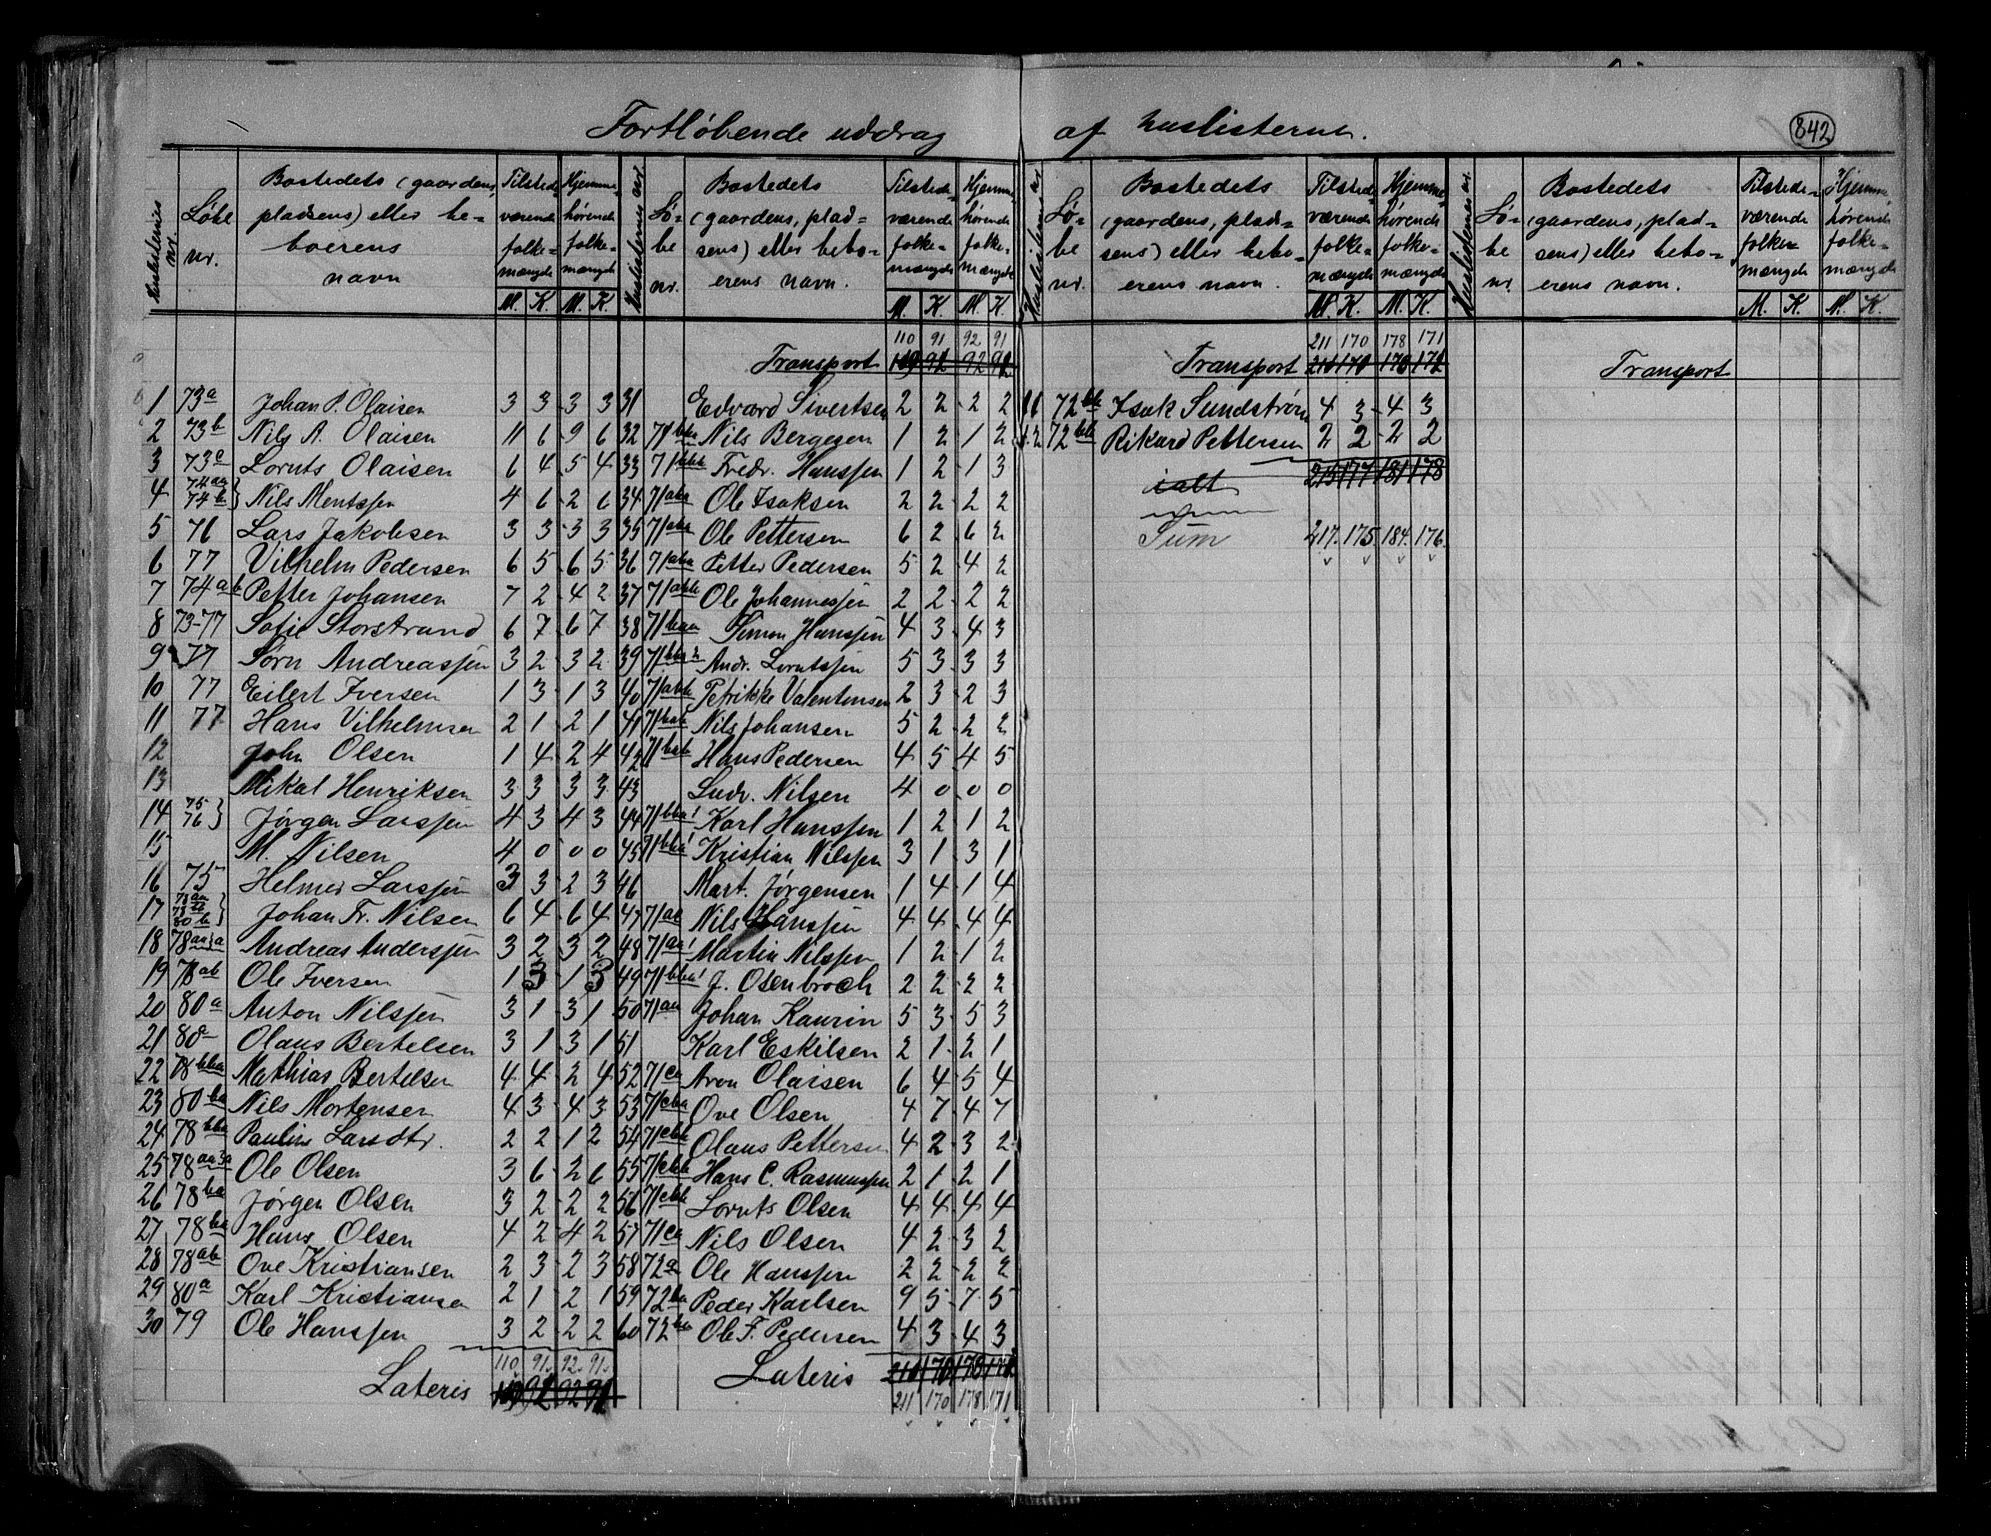 842
Fortløbende uddrag af huslisterne.
Huslisternes nr. Løbe nr. Bostedets (gaardens, pladsens) eller beboerens navn Tilstedeværende folkemængde M. K. Hjemmehørende folkemængde M. K.
1 73a Johan P. Olaisen 3 3 3 3
2 73b Nils A. Olaisen 11 6 9 6
3 73c Lornts Olaisen 6 4 5 4
4 74aa 74b } Nils Mentssen 4 6 2 6
5 76 Lars Jakobsen 3 3 3 3
6 77 Vilhelm Pedersen 6 5 6 5
7 74ab Petter Johansen 7 2 4 2
8 73-77 Sofie Storstrand 6 7 6 7
9 77 Sørn Andreassen 3 2 3 2
10 77 Eilert Iversen 1 3 1 3
11 77 Hans Vilhelmsen 2 1 2 1
12 John Olsen 1 4 2 4
13 Mikal Henriksen 3 3 3 3
14 75 76 } Jørgen Larssen 4 3 4 3
15 M. Nilsen 4 0 0 0
16 75 Helmer Larssen 3 3 2 3
17 Johan Fr. Nilsen 6 4 6 4
18 Andreas Anderssen 3 2 3 2
19 78ab Ole Iversen 1 3 1 3
20 80a Anton Nilssen 3 1 3 1
21 80 Olaus Bertelsen 3 1 3 1
22 78bba Mathias Bertelsen 4 4 2 4
23 80ba Nils Mortensen 4 3 4 3
24 78bba Pauline Larsdtr. 2 2 1 2
25 Ole Olsen 3 6 2 6
26 78ba Jørgen Olsen 3 2 2 2
27 78ba Hans Olsen 4 2 4 2
28 78ab Ove Kristiansen 2 3 2 3
29 80a Karl Kristiansen 2 1 2 1
30 79 Ole Hanssen 3 2 2 2
110 91 92 91
Lateris
Huslisternes nr. Løbe nr. Bostedets (gaardens, pladsens) eller beboerens navn. Tilstedeværende folkemængde M. K. Hjemmehørende folkemængde M. K.
110 91 92 91
Transport
31 Edvard Sivertsen 2 2 2 2
32 Nils Bergesen 1 2 1 2
33 Fredr. Hanssen 1 2 1 3
34 Ole Isaksen 2 2 2 2
35 Ole Pettersen 6 2 6 2
36 Petter Pedersen 5 2 4 2
37 Ole Johannessen 2 2 2 2
38 71baa Simon Hanssen 4 3 4 3
39 Andr. Lorntssen 5 3 3 3
40 Petrikke Valentinsen 2 3 2 3
41 71bab Nils Johansen 5 2 2 2
42 71bab Hans Pedersen 4 5 4 5
43 Ludv. Nilsen 4 0 0 0
44 71bba1 Karl Hanssen 1 2 1 2
45 Kristian Nilssen 3 1 3 1
46 Mart. Jørgensen 1 4 1 4
47 Nils Hanssen 4 4 4 4
48 71aa1 Martin Nilssen 1 2 1 2
49 71bba1 J. Osenbroch 2 2 2 2
50 71aa Johan Kaurin 5 3 5 3
51 Karl Eskilsen 2 1 2 1
52 71ca Aron Olaisen 6 4 5 4
53 71cba Ove Olsen 4 7 4 7
54 71cbb Olaus Pettersen 4 2 3 2
55 71cbb Hans C. Rasmussen 2 1 2 1
56 71cbb Lornts Olsen 4 4 4 4
57 71ca Nils Olsen 4 2 3 2
58 72a Ole Hanssen 2 2 2 2
59 72ba Peder Karlsen 9 5 7 5
60 72ba Ole F. Pedersen 4 3 4 3
Lateris 210 170 178 172
211 170 178 171
Huslisternes nr. Løbe nr. Bostedets (gaardens, pladsens) eller beboerens navn. Tilstedeværende folkemængde M. K. Hjemmehørende folkemængde M. K.
211 170 178 171
Transport
61 72bb Isak Sundstrøm 4 3 4 3
62 72bb Rikard Pettersen 2 2 2 2
ialt 215 177 181 178
Sum 217. 175. 184. 176.
Huslisternes nr. Løbe nr. Bostedets (gaardens, pladsens) eller beboerens navn. Tilstedeværende folkemængde M. K. Hjemmehørende folkemængde M. K.
Transport